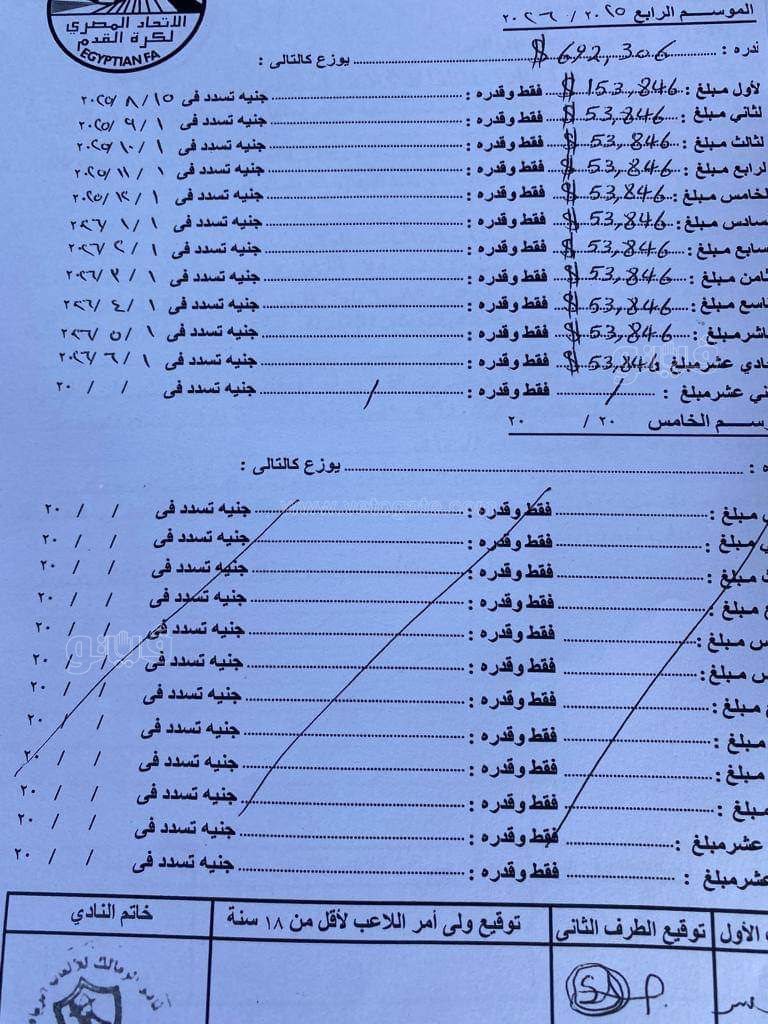 الاتحاد المصري
لكرة القدم
EGYPTIAN FA
الموسم الرابع ٢٠٢٥ / ٢٠٢٦
قدره : $ 692,306 يوزع كالتالى :
لأول مبلغ : $ 153,846 فقط وقدره : جنيه تسدد فى ١٥ / ٨ / ٢٠٢٥
لثاني مبلغ : $ 53,846 فقط وقدره : جنيه تسدد فى ١ / ٩ / ٢٠٢٥
لثالث مبلغ : $ 53,846 فقط وقدره : جنيه تسدد فى ١ / ١٠ / ٢٠٢٥
لرابع مبلغ : $ 53,846 فقط وقدره : جنيه تسدد فى ١ / ١١ / ٢٠٢٥
لخامس مبلغ : $ 53,846 فقط وقدره : جنيه تسدد فى ١ / ١٢ / ٢٠٢٥
سادس مبلغ : $ 53,846 فقط وقدره : جنيه تسدد فى ١ / ١ / ٢٠٢٦
سابع مبلغ : $ 53,846 فقط وقدره : جنيه تسدد فى ١ / ٢ / ٢٠٢٦
ثامن مبلغ : $ 53,846 فقط وقدره : جنيه تسدد فى ١ / ٣ / ٢٠٢٦
تاسع مبلغ : $ 53,846 فقط وقدره : جنيه تسدد فى ١ / ٤ / ٢٠٢٦
عاشر مبلغ : $ 53,846 فقط وقدره : جنيه تسدد فى ١ / ٥ / ٢٠٢٦
حادي عشر مبلغ $ 53,846 فقط وقدره : جنيه تسدد فى ١ / ٦ / ٢٠٢٦
ني عشر مبلغ : / فقط وقدره : / جنيه تسدد فى / / ٢٠
وسم الخامس ٢٠ / ٢٠
ه : يوزع كالتالى :
مبلغ : فقط وقدره : جنيه تسدد فى / / ٢٠
ي مبلغ : فقط وقدره : جنيه تسدد فى / / ٢٠
ث مبلغ : فقط وقدره : جنيه تسدد فى / / ٢٠
ع مبلغ : فقط وقدره : جنيه تسدد فى / / ٢٠
س مبلغ : فقط وقدره : جنيه تسدد فى / / ٢٠
س مبلغ : فقط وقدره : جنيه تسدد فى / / ٢٠
ع مبلغ : فقط وقدره : جنيه تسدد فى / / ٢٠
مبلغ : فقط وقدره : جنيه تسدد فى / / ٢٠
مبلغ : فقط وقدره : جنيه تسدد فى / / ٢٠
مبلغ : فقط وقدره : جنيه تسدد فى / / ٢٠
عشر مبلغ : فقط وقدره : جنيه تسدد فى / / ٢٠
عشر مبلغ : فقط وقدره : جنيه تسدد فى / / ٢٠
الأول توقيع الطرف الثانى توقيع ولى أمر اللاعب لأقل من ١٨ سنة خاتم النادي
نادي الزمالك للألعاب الرياضية
www.vetogate.com
ڤيتو